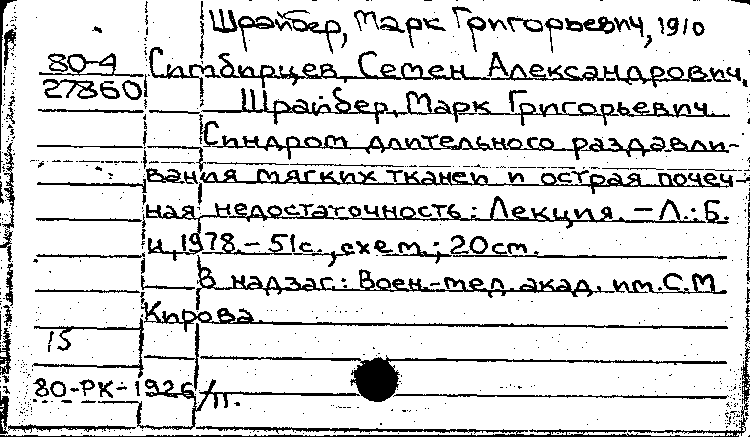 Шрайбер, Марк Григорьевич, 1910
80-4 Симбирцев, Семен Александрович.
27860 Шрайбер, Марк Григорьевич.
Синдром длительного раздавли-
вания мягких тканей и острая почеч-
ная недостаточность: Лекция. – Л.: Б.
и, 1978. – 51с., схем.; 20см.
В надзаг.: Воен.-мед. акад. им. С.М.
Кирова.
15
80-РК-1926/п.